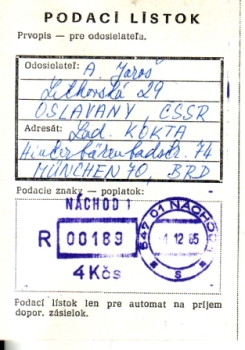 PODACÍ LÍSTOK
Prvopis — pre odosielateľa.
Odosielateľ: A. Jaroš
Letkovská 29
OSLAVANY, ČSSR
Adresát: Lad. KOKTA
Hinterbärenbadstr. 74
MÜNCHEN 70, BRD
Podacie znaky — poplatok:
NÁCHOD 1
R 00189
4 Kčs
547 01 NÁCHOD 1
12 85
s
Podací lístok len pre automat na príjem
dopor. zásielok.